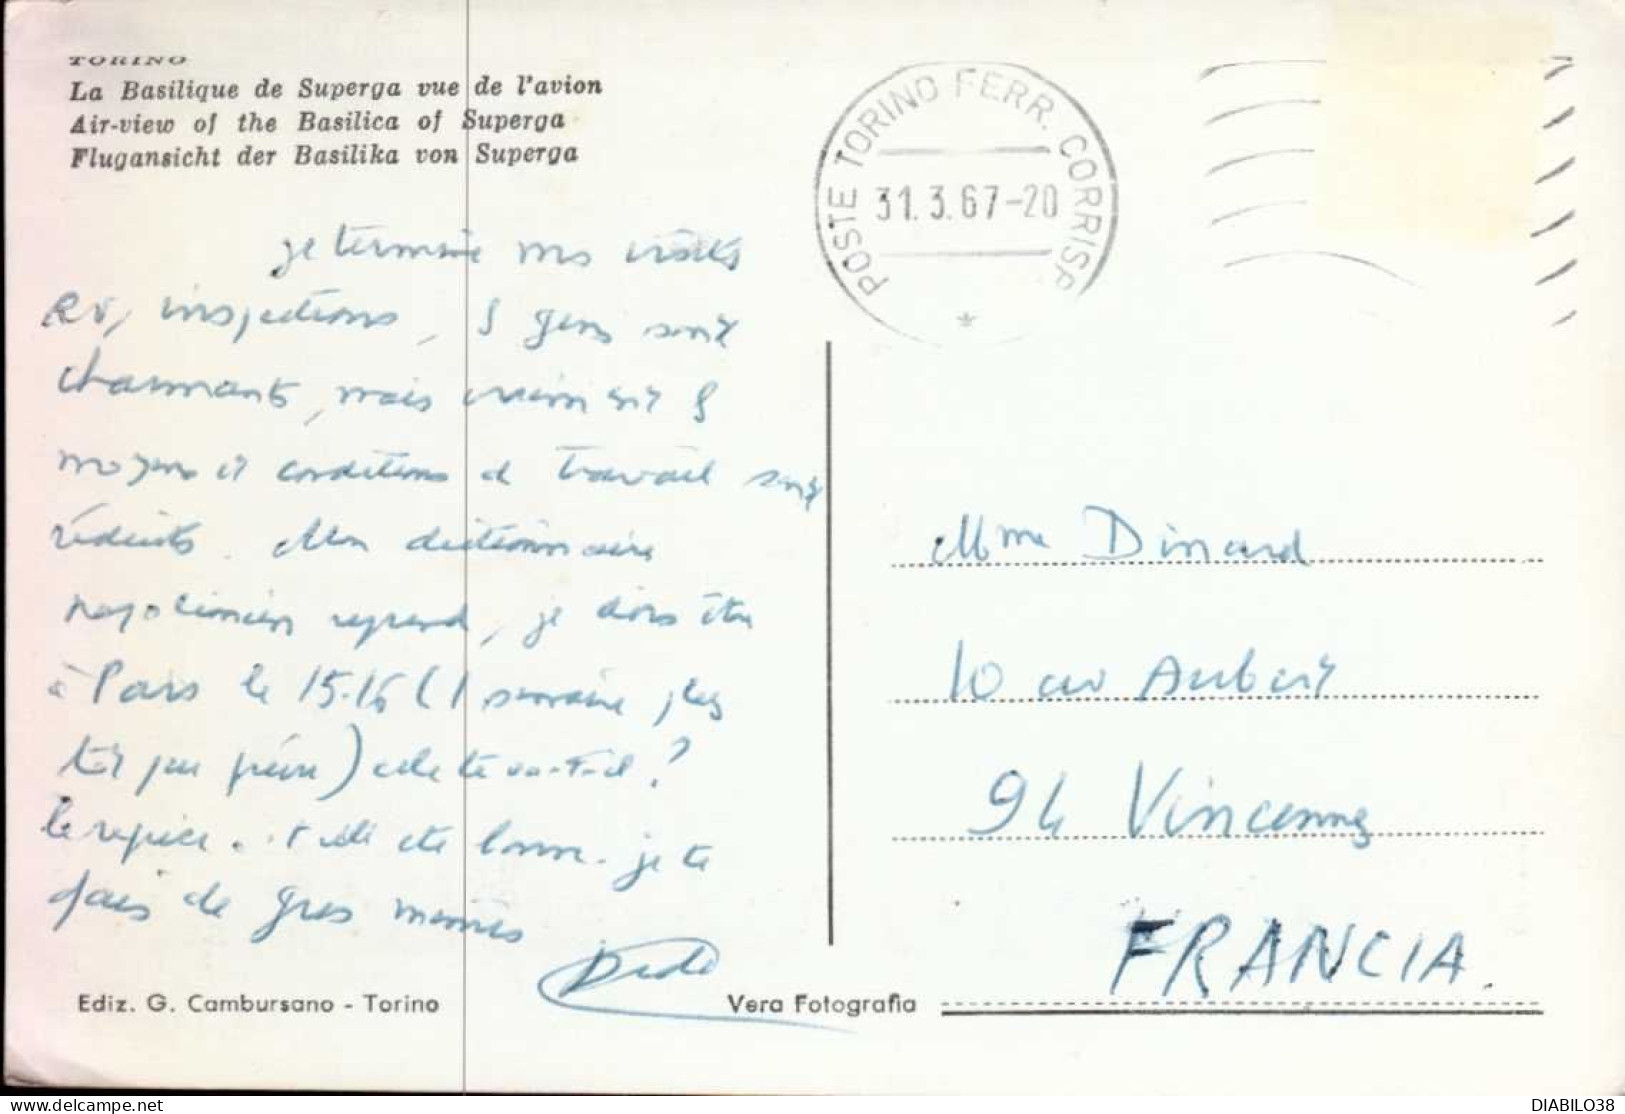 TORINO
La Basilique de Superga vue de l'avion
Air-view of the Basilica of Superga
Flugansicht der Basilika von Superga
POSTE TORINO FERR. CORRISP.
31.3.67-20
je termine mes visites
RV, inspections, gens sont
charmants, mais vraiment
moyens et conditions de travail sont
réduits. Mon dictionnaire
napoléonien reprend, je dois être
à Paris le 15-16 (1 semaine plus
tôt que prévu) cela te va-t-il?
je te
fais de gros mimis
Dédé
Mme Dinard
10 av Aubert
94 Vincennes
FRANCIA.
Ediz. G. Cambursano - Torino
Vera Fotografia
delcampe.net
DIABILO38